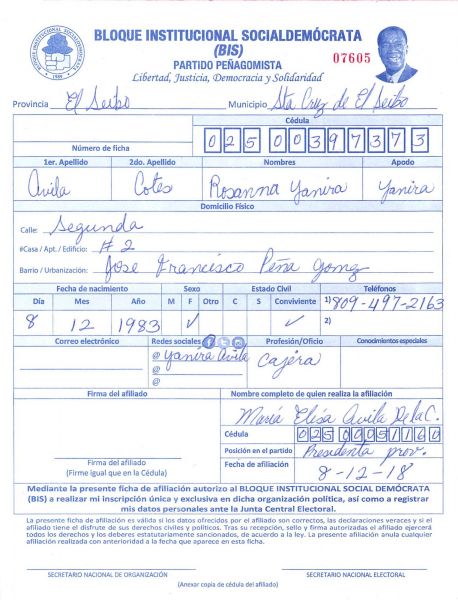 BLOQUE INSTITUCIONAL SOCIALDEMÓCRATA
(BIS)
PARTIDO PEÑAGOMISTA
07605
Libertad, Justicia, Democracia y Solidaridad
Provincia El Seibo Municipio Sta Cruz de El Seibo
Cédula
Número de ficha 025 0039737 3
1er. Apellido 2do. Apellido Nombres Apodo
Avila Cotes Rosanna Yanira Yanira
Domicilio Físico
Calle: Segunda
#Casa / Apt. / Edificio: # 2
Barrio / Urbanización: Jose Francisco Peña Gomez
Fecha de nacimiento Sexo Estado Civil Teléfonos
Día Mes Año M F Otro C S Conviviente 1) 809-497-2163
8 12 1983 ✓ ✓ 2)
Correo electrónico Redes sociales Profesión/Oficio Conocimientos especiales
@ Yanira Avila Cajera
@
@
Firma del afiliado Nombre completo de quien realiza la afiliación
María Elisa Avila De la C.
Cédula
Posición en el partido Presidenta prov.
Firma del afiliado
(Firme igual que en la Cédula)
Fecha de afiliación 8-12-18
Mediante la presente ficha de afiliación autorizo al BLOQUE INSTITUCIONAL SOCIAL DEMÓCRATA
(BIS) a realizar mi inscripción única y exclusiva en dicha organización política, así como a registrar
mis datos personales ante la Junta Central Electoral.
La presente ficha de afiliación es válida si los datos ofrecidos por el afiliado son correctos, las declaraciones veraces y si el
afiliado tiene el disfrute de sus derechos civiles y políticos. Tras su recepción, sello y firma autorizadas el afiliado ejercerá
todos los derechos y los deberes estatutariamente sancionados, de acuerdo a la ley. La presente afiliación anula cualquier
afiliación realizada con anterioridad a la fecha que aparece en esta ficha.
SECRETARIO NACIONAL DE ORGANIZACIÓN SECRETARIO NACIONAL ELECTORAL
(Anexar copia de cédula del afiliado)